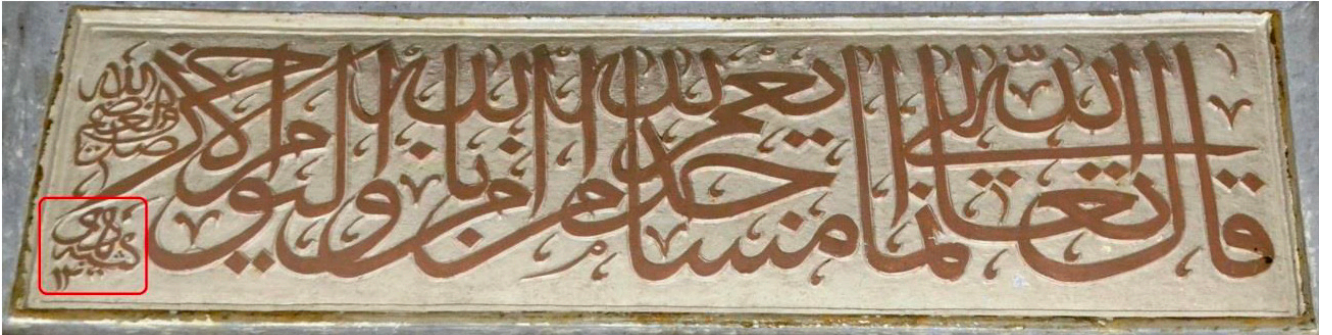 قال الله تعالى انما يعمر مساجد الله من امن بالله واليوم الاخر
صدق الله العظيم